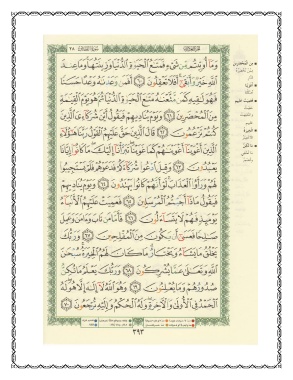 وَمَآ أُوتِيتُم مِّن شَىْءٍ فَمَتَـٰعُ ٱلْحَيَوٰةِ ٱلدُّنْيَا وَزِينَتُهَا وَمَا عِندَ
ٱللَّهِ خَيْرٌ وَأَبْقَىٰٓ أَفَلَا تَعْقِلُونَ ٦٠ أَفَمَن وَعَدْنَـٰهُ وَعْدًا حَسَنًا
فَهُوَ لَـٰقِيهِ كَمَن مَّتَّعْنَـٰهُ مَتَـٰعَ ٱلْحَيَوٰةِ ٱلدُّنْيَا ثُمَّ هُوَ يَوْمَ ٱلْقِيَـٰمَةِ
مِنَ ٱلْمُحْضَرِينَ ٦١ وَيَوْمَ يُنَادِيهِمْ فَيَقُولُ أَيْنَ شُرَكَآءِىَ ٱلَّذِينَ
كُنتُمْ تَزْعُمُونَ ٦٢ قَالَ ٱلَّذِينَ حَقَّ عَلَيْهِمُ ٱلْقَوْلُ رَبَّنَا هَـٰٓؤُلَآءِ
ٱلَّذِينَ أَغْوَيْنَآ أَغْوَيْنَـٰهُمْ كَمَا غَوَيْنَا تَبَرَّأْنَآ إِلَيْكَ مَا كَانُوٓا۟ إِيَّانَا
يَعْبُدُونَ ٦٣ وَقِيلَ ٱدْعُوا۟ شُرَكَآءَكُمْ فَدَعَوْهُمْ فَلَمْ يَسْتَجِيبُوا۟
لَهُمْ وَرَأَوُا۟ ٱلْعَذَابَ لَوْ أَنَّهُمْ كَانُوا۟ يَهْتَدُونَ ٦٤ وَيَوْمَ يُنَادِيهِمْ
فَيَقُولُ مَاذَآ أَجَبْتُمُ ٱلْمُرْسَلِينَ ٦٥ فَعَمِيَتْ عَلَيْهِمُ ٱلْأَنۢبَآءُ
يَوْمَئِذٍ فَهُمْ لَا يَتَسَآءَلُونَ ٦٦ فَأَمَّا مَن تَابَ وَءَامَنَ وَعَمِلَ
صَـٰلِحًا فَعَسَىٰٓ أَن يَكُونَ مِنَ ٱلْمُفْلِحِينَ ٦٧ وَرَبُّكَ
يَخْلُقُ مَا يَشَآءُ وَيَخْتَارُ مَا كَانَ لَهُمُ ٱلْخِيَرَةُ سُبْحَـٰنَ
ٱللَّهِ وَتَعَـٰلَىٰ عَمَّا يُشْرِكُونَ ٦٨ وَرَبُّكَ يَعْلَمُ مَا تُكِنُّ
صُدُورُهُمْ وَمَا يُعْلِنُونَ ٦٩ وَهُوَ ٱللَّهُ لَآ إِلَـٰهَ إِلَّا هُوَ لَهُ
ٱلْحَمْدُ فِى ٱلْأُولَىٰ وَٱلْـَٔاخِرَةِ وَلَهُ ٱلْحُكْمُ وَإِلَيْهِ تُرْجَعُونَ ٧٠
٣٩٣